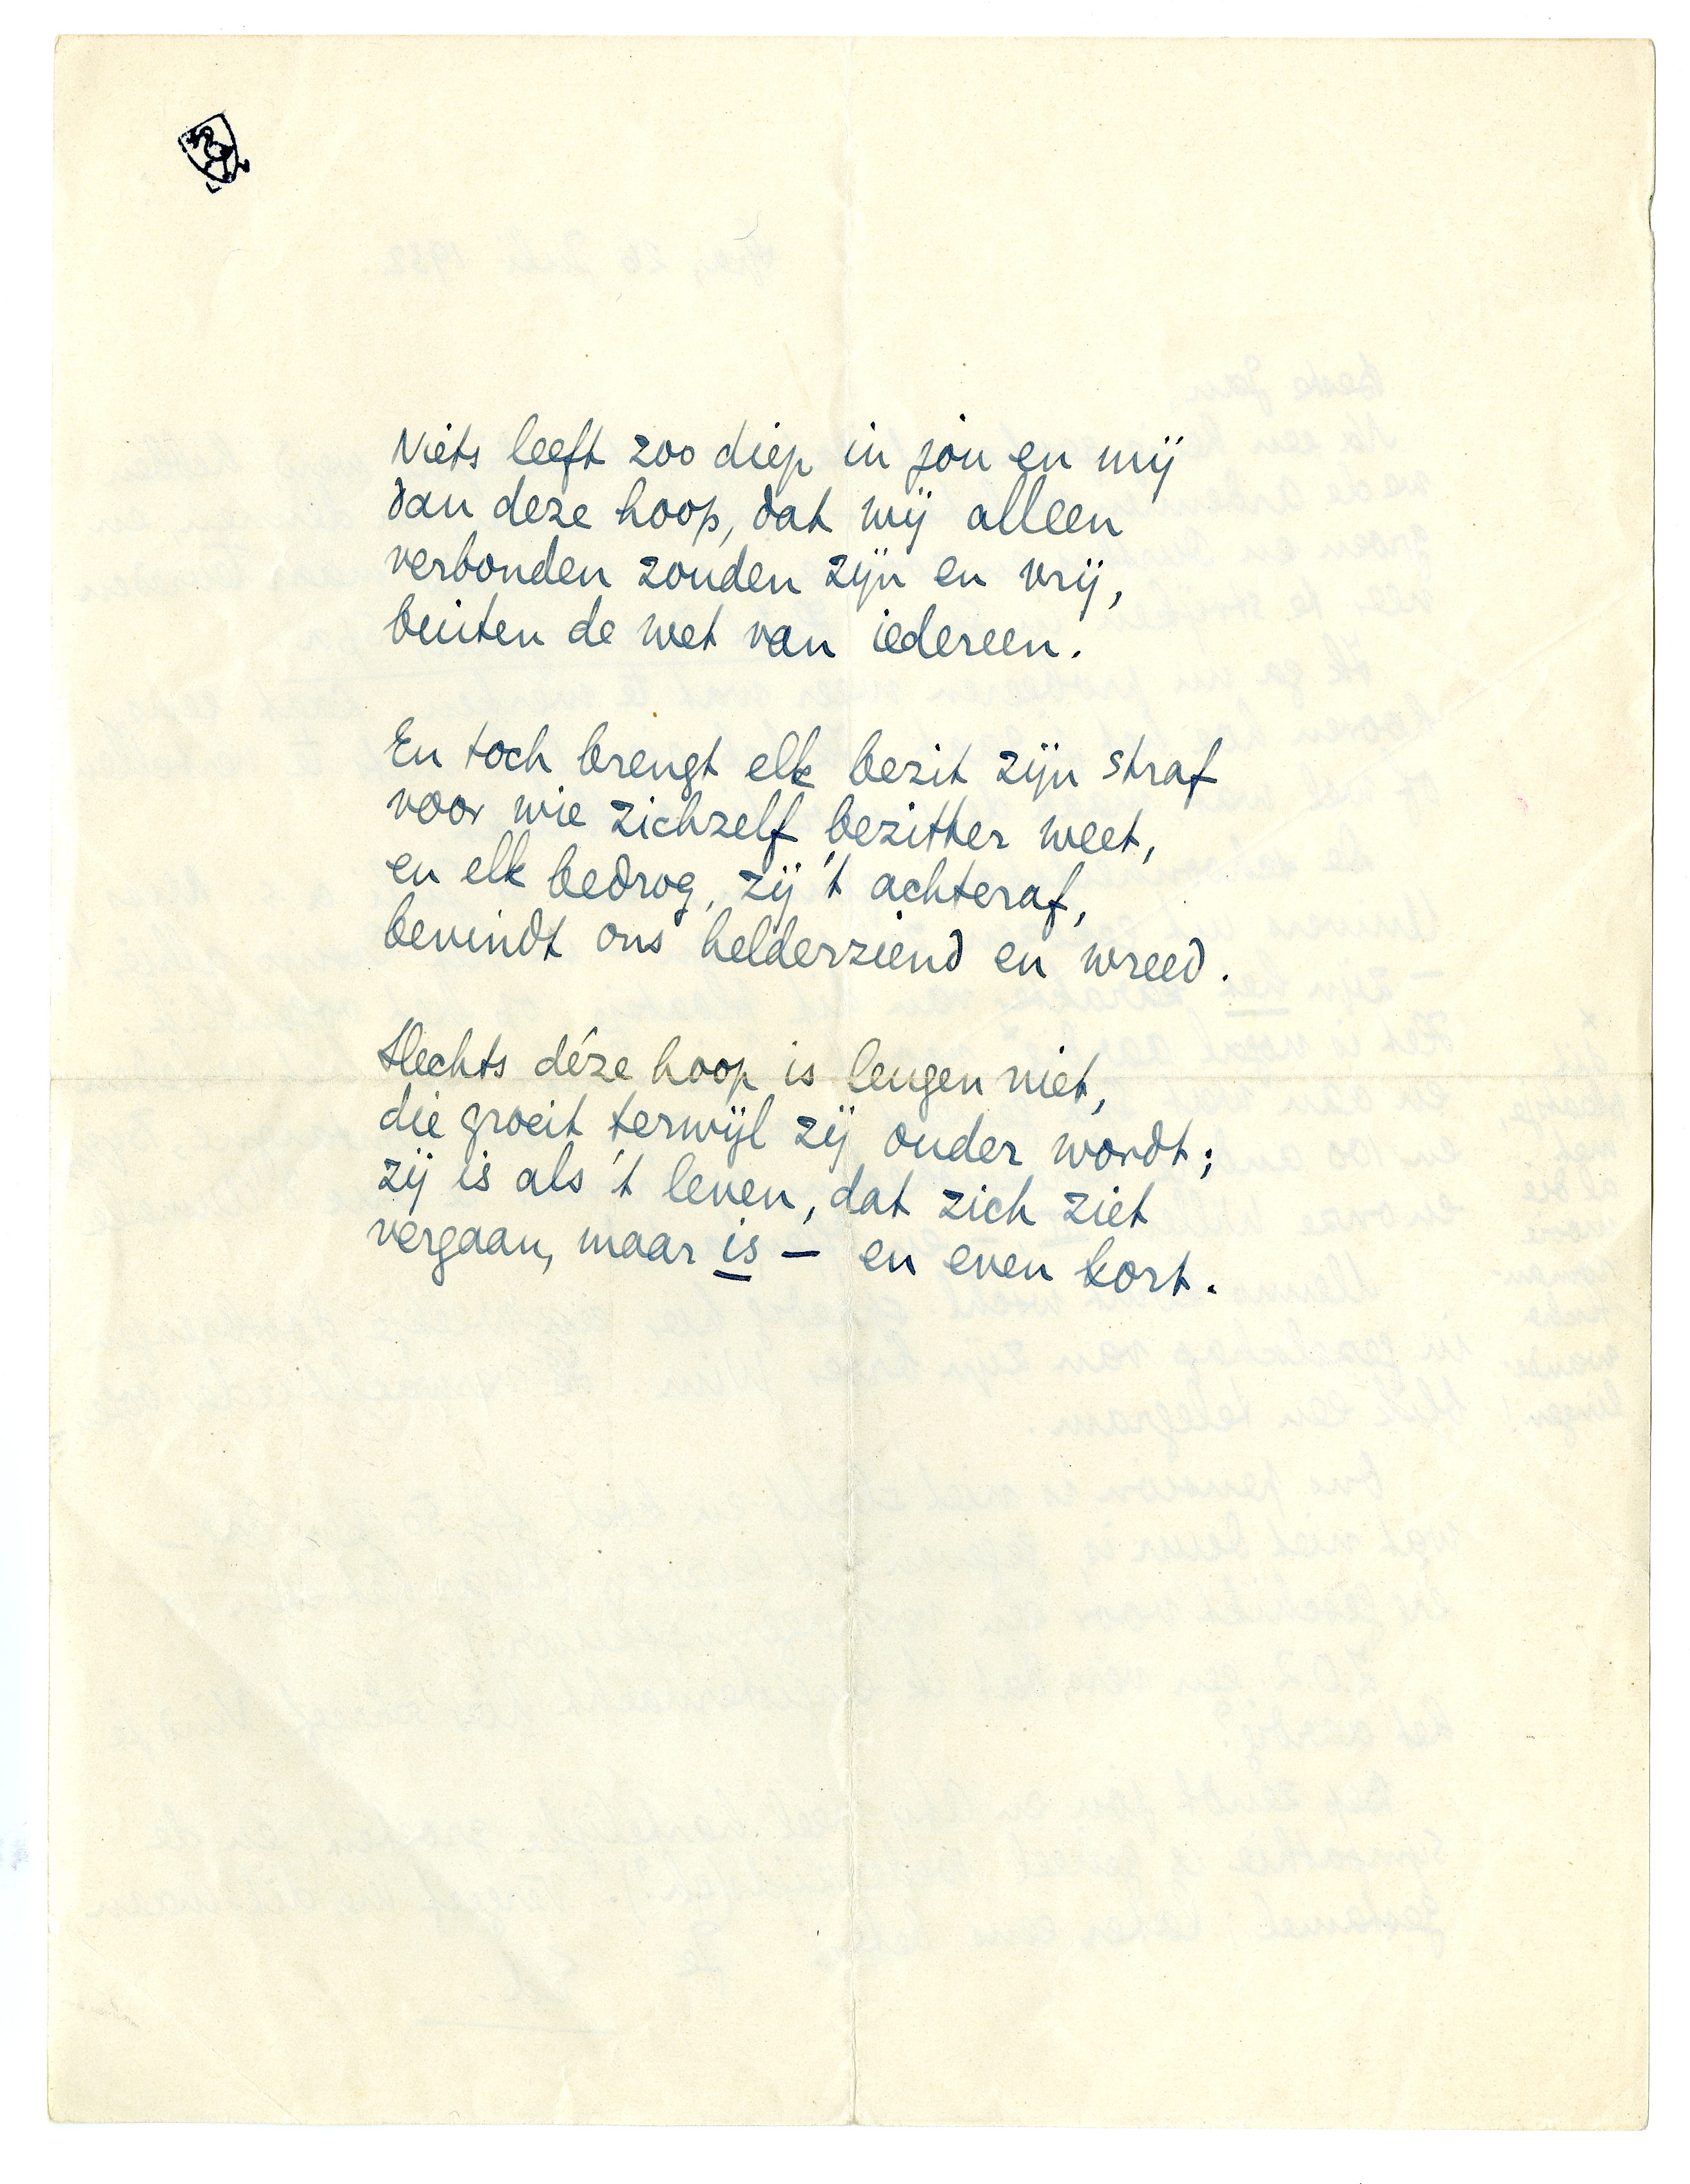 Niets leeft zoo diep in jou en mij
dan deze hoop, dat wij alleen
verbonden zouden zijn en vrij,
buiten de wet van iedereen.
En toch brengt elk bezit zijn straf
voor wie zichzelf bezitter weet,
en elk bedrog, zij 't achteraf,
bevindt ons helderziend en wreed.
Slechts déze hoop is leugen niet,
die groeit terwijl zij ouder wordt;
zij is als 't leven, dat zich ziet
vergaan, maar is — en even kort.